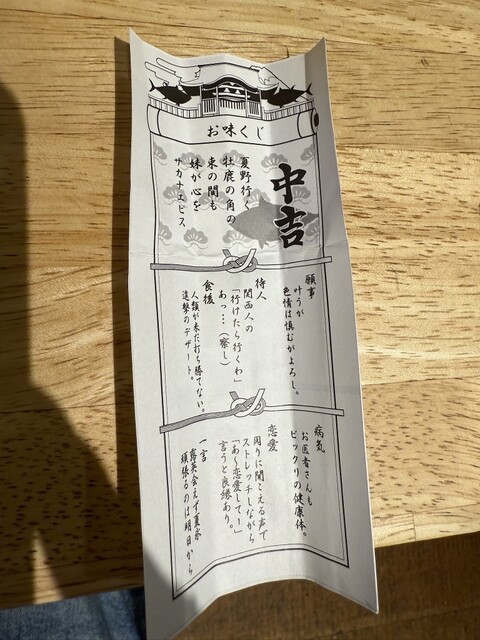 お味くじ
中吉
夏野行く
牡鹿の角の
束の間も
妹が心を
サカナエビス
願事
叶うが
色情は慎むがよろし。
待人
関西人の
「行けたら行くわ」
あっ…(察し)
食後
人類が未だ打ち勝てない。
進撃のデザート。
病気
お医者さんも
ビックリの健康体。
恋愛
周りに聞こえる声で
ストレッチしながら
「あ〜恋愛して〜」
言うと良縁あり。
一言
頑張るのは明日から